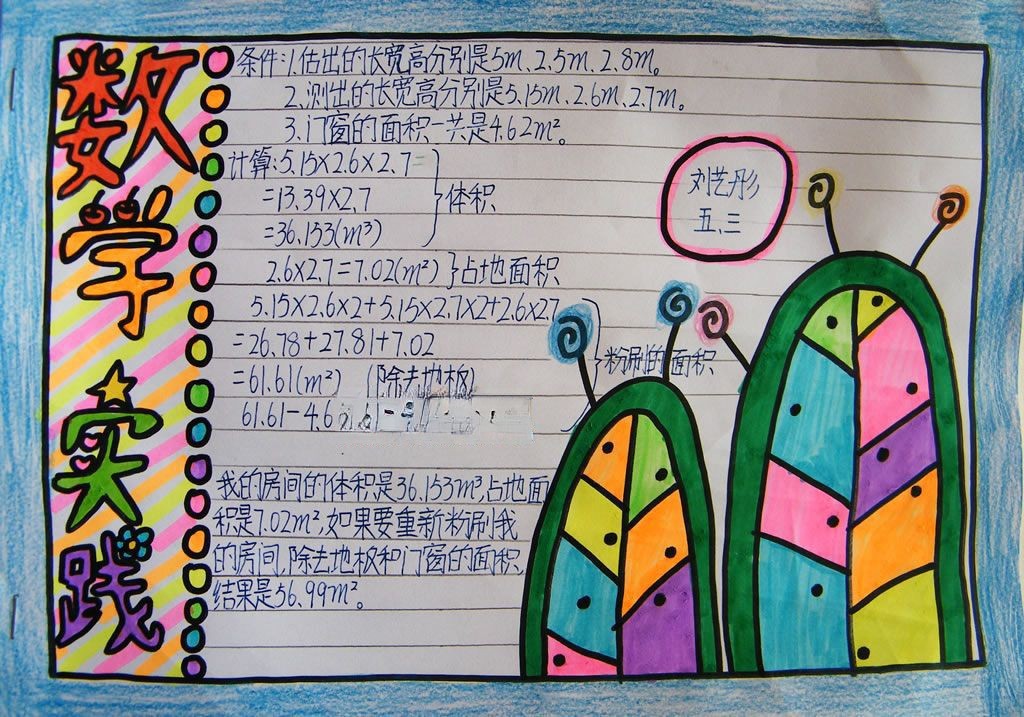 数学实践
条件:1.估出的长宽高分别是5m、2.5m、2.8m。
2.测出的长宽高分别是5.15m、2.6m、2.7m。
3.门窗的面积一共是4.62m²。
计算:5.15×2.6×2.7=
=13.39×2.7
=36.153(m³)
体积
2.6×2.7=7.02(m²)}占地面积
5.15×2.6×2+5.15×2.7×2+2.6×2.7
=26.78+27.81+7.02
=61.61(m²) (除去地板)
61.61-4.6
粉刷的面积
我的房间的体积是36.153m³,占地面
积是7.02m².如果要重新粉刷我
的房间,除去地板和门窗的面积,
结果是56.99m²。
刘艺彤
五.三